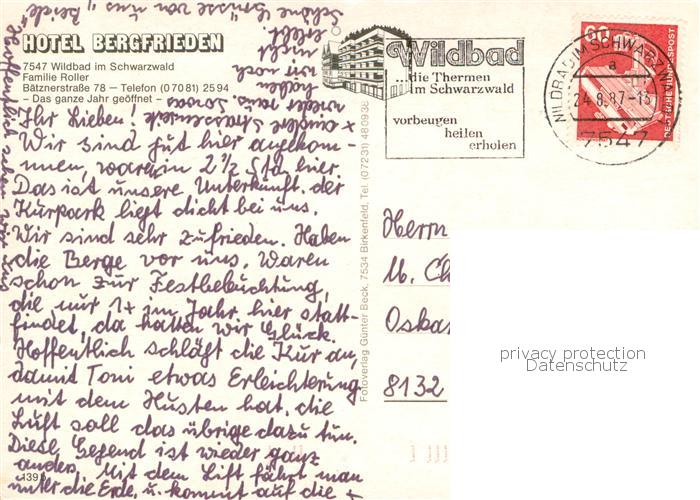 HOTEL BERGFRIEDEN
7547 Wildbad im Schwarzwald
Familie Roller
Bätznerstraße 78 – Telefon (07081) 2594
– Das ganze Jahr geöffnet –
Ihr Lieben!
Wir sind gut hier angekom-
men, waren 2 1/2 Std hier.
Das ist unsere Unterkunft. der
Kurpark liegt dicht bei uns.
Wir sind sehr zufrieden. Haben
die Berge vor uns. Waren
schon zur Festbeleuchtung,
die nur 1x im Jahr. hier statt-
findet, da hatten wir Glück.
Hoffentlich schlägt die Kur an,
damit Toni etwas Erleichterung
mit dem Husten hat. die
Luft soll das übrige dazu tun.
Diese Gegend ist wieder ganz
anders. Mit dem Lift fährt man
unter die Erde, u. kommt auf die +
+ andere Strassenseite
wieder raus. Sowas
haben wir noch
nicht erlebt
Schöne Grüsse von uns Beide
Hoffentlich sehen wir uns
139
Fotoverlag Günter Beck, 7534 Birkenfeld, Tel. (07231) 480938
Wildbad
...die Thermen
im Schwarzwald
vorbeugen
heilen
erholen
WILDBAD IM SCHWARZW
a
24.8.87-13
7547
60
DEUTSCHE BUNDESPOST
Herrn
M. Ch
Oskar
8132
privacy protection
Datenschutz